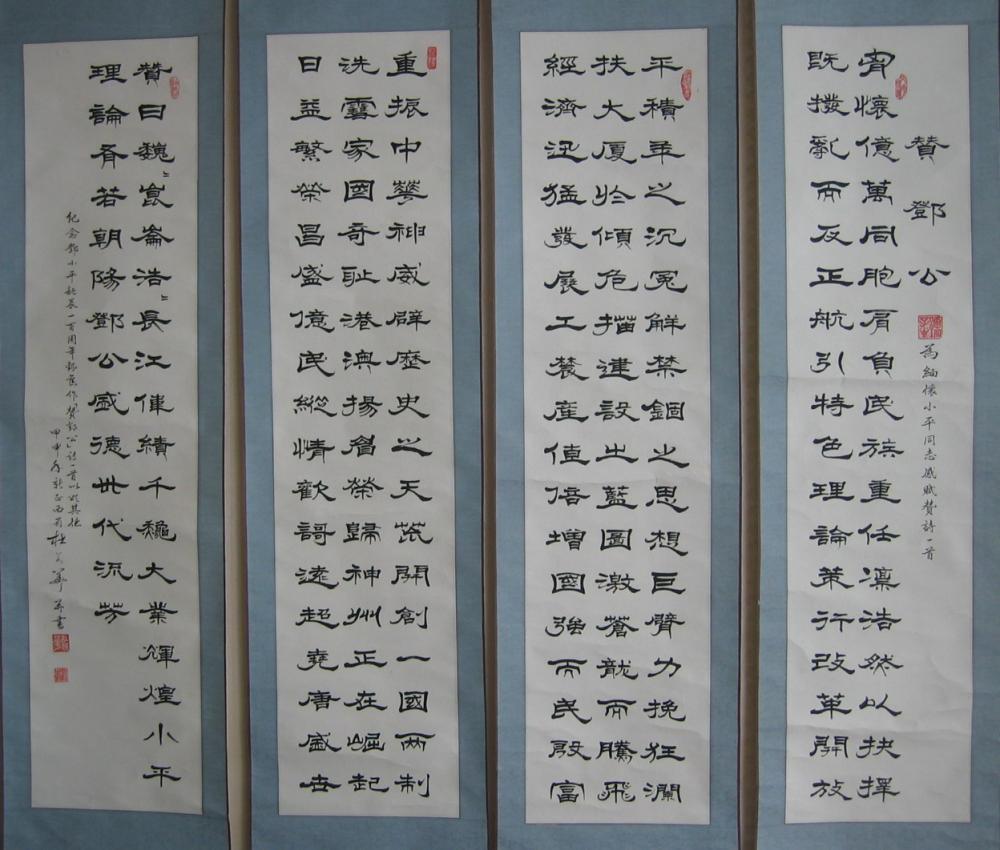 贊鄧公
為緬懷小平同志感賦贊詩一首
胷懷億萬同胞肩負民族重任凜浩然以抉擇
既撥亂而反正航引特色理論策行改革開放
平積年之沉冤解禁錮之思想巨臂力挽狂瀾
扶大廈於傾危描建設之藍圖激蒼龍而騰飛
經濟迅猛發展工農產值倍增國強而民殷富
重振中華神威辟歷史之天荒開創一國兩制
洗雪家國奇耻港澳揚眉榮歸神州正在崛起
日益繁榮昌盛億民縱情歡謌遠超堯唐盛世
贊曰巍〃崑崙浩〃長江偉績千龝大業輝煌小平
理論有若朝陽鄧公盛德世代流芳
紀念鄧小平誕辰一百周年作贊鄧公詩一首以其德
甲申年新正西蜀杜華並書